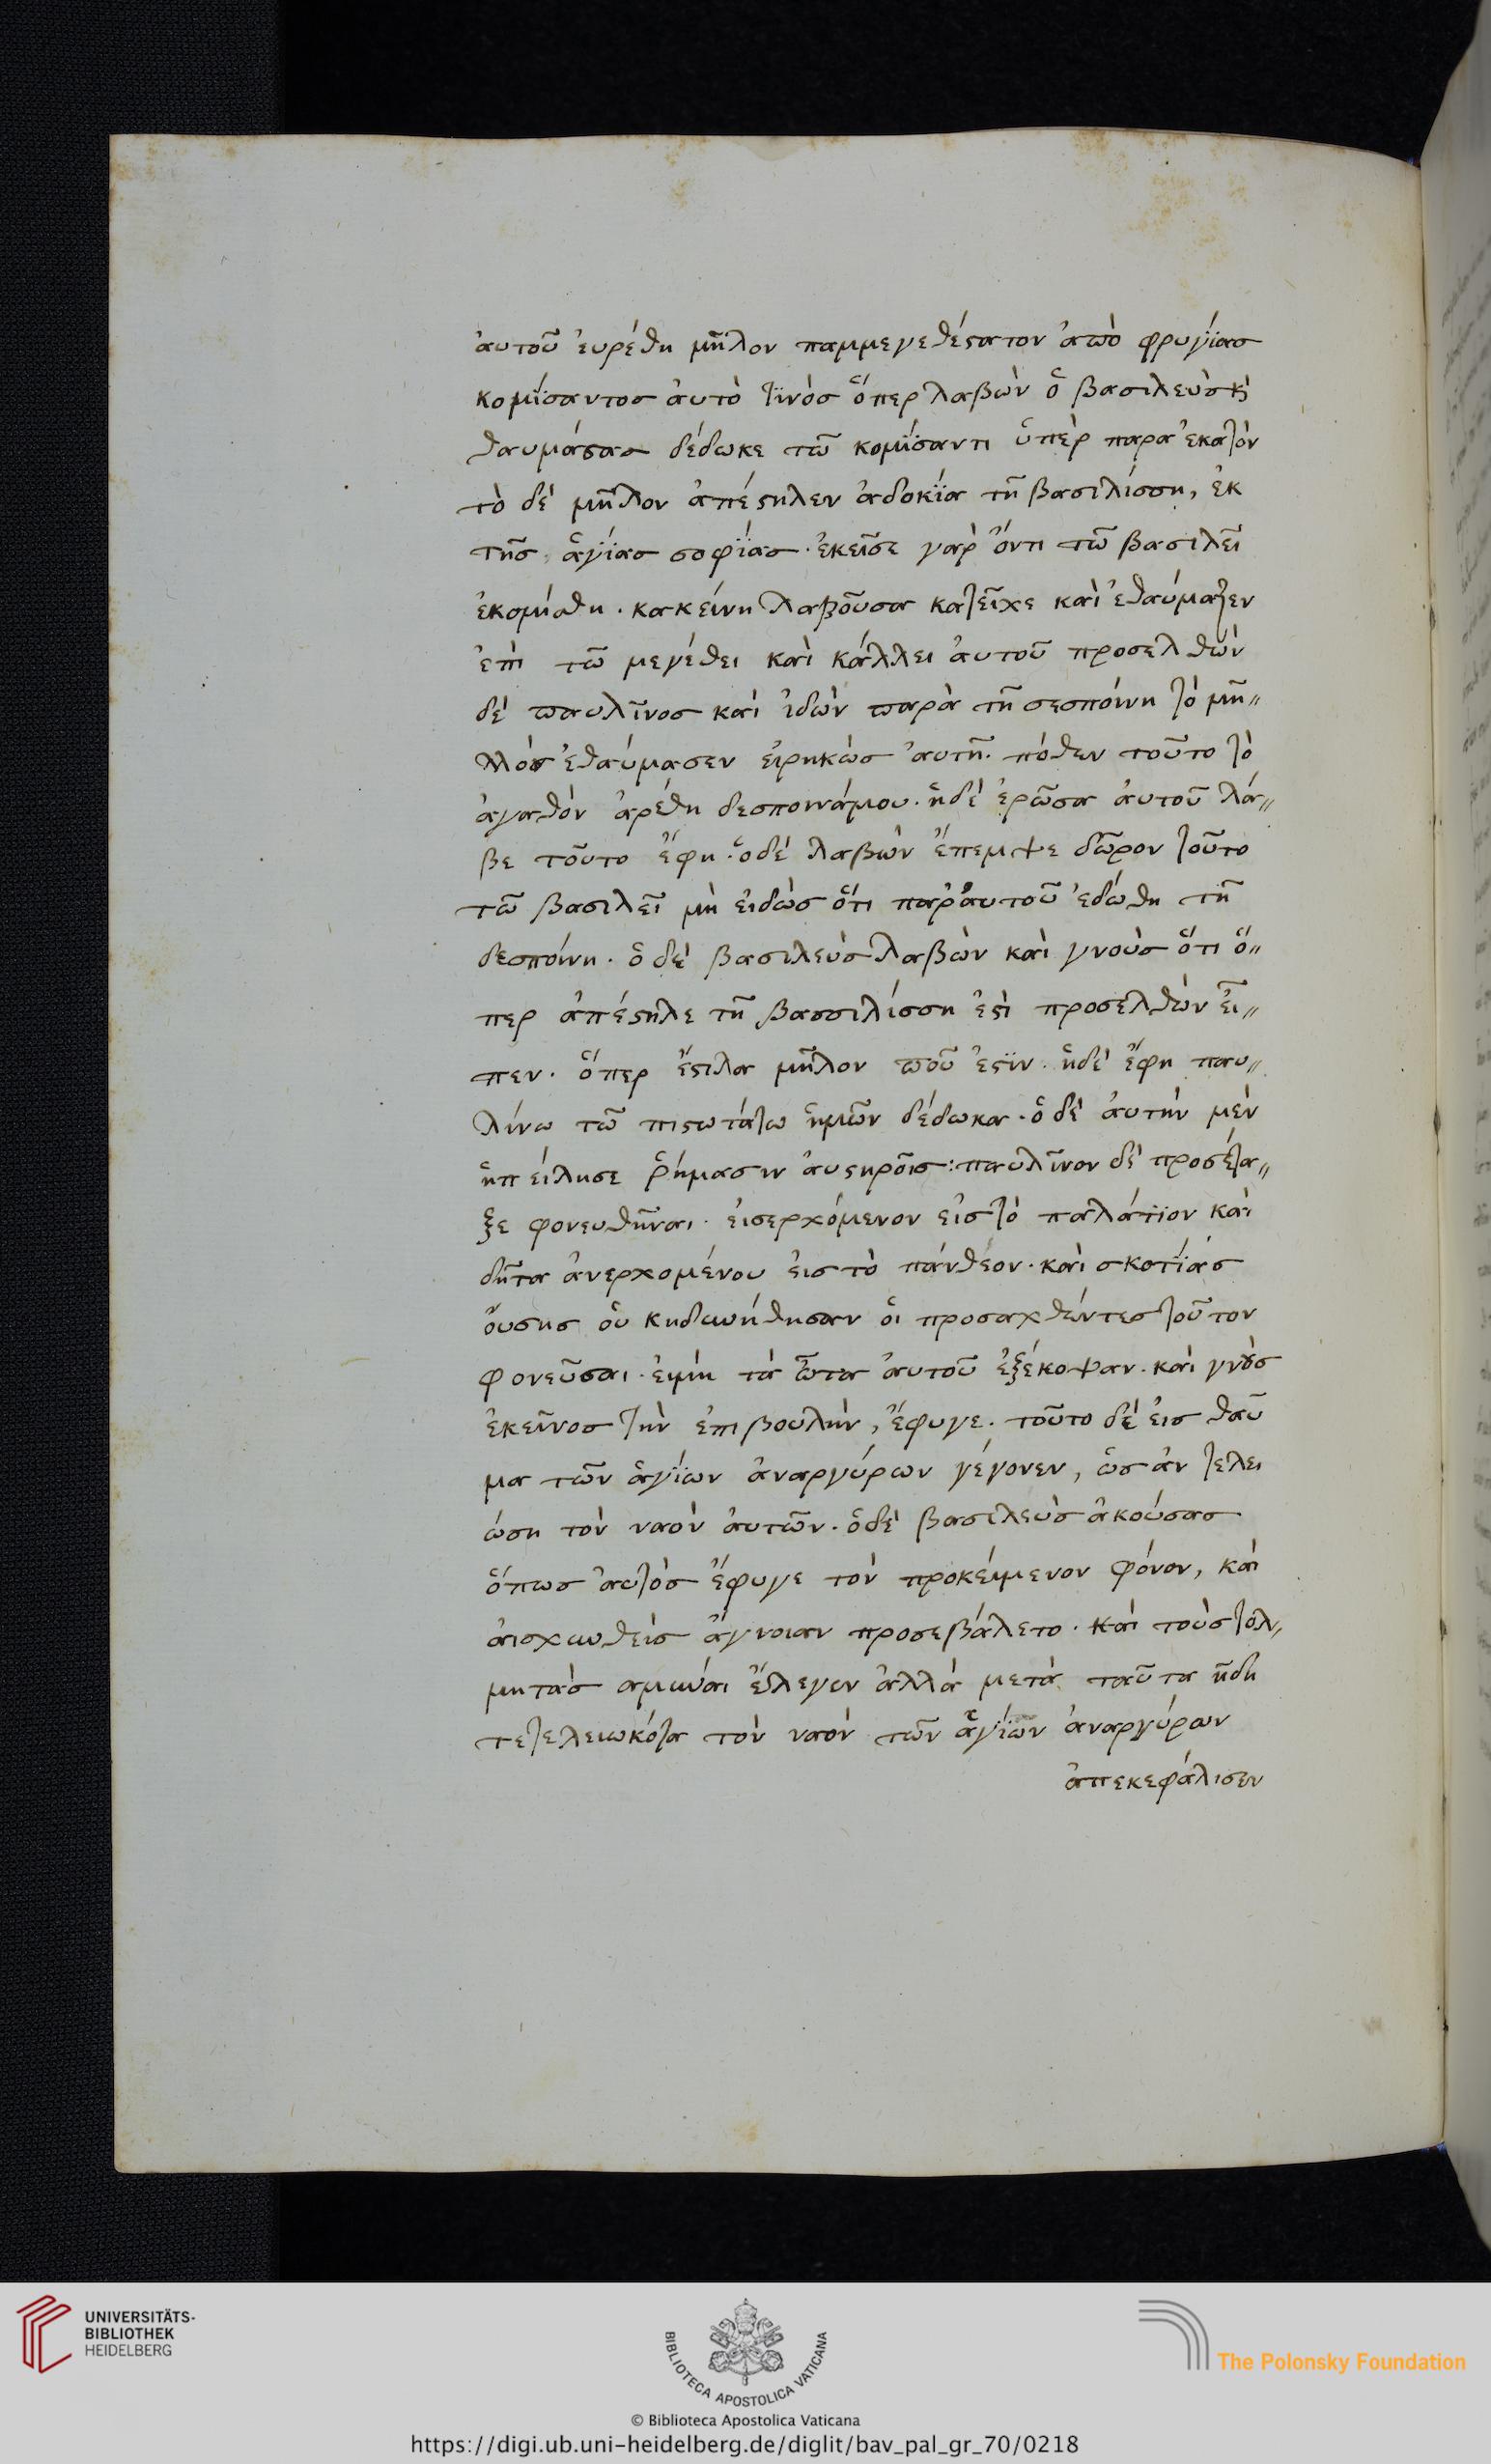 ἀυτοῦ ἑυρέθη μῆλον παμμεγεθέστατον ἀπὸ φρυγίας
κομίσαντος ἀυτὸ τϊνὸς ὅπερ λαβὼν ὁ βασιλεὺς καὶ
θαυμάσας δέδωκε τῶ κομίσαντι ὑπὲρ παρα ἑκατὸν
τὸ δὲ μῆλον ἀπέστηλεν ἀδοκία τῆ βασιλίσση, ἐκ
τῆς ἁγίας σοφίας. ἐκεῖσε γὰρ ὄντι τῶ βασιλεῖ
ἐκομίσθη. κακείνη λαβοῦσα κατεῖχε καὶ ἐθαύμαζεν
ἐπὶ τῶ μεγέθει καὶ κάλλει ἀυτοῦ προσελθὼν
δὲ παυλῖνος καὶ ἰδὼν παρὰ τῆ δεσποίνη τὸ μῆ"
λλὸν ἐθαύμασεν ἐιρηκὼς ἀυτῆ. πόθεν τοῦτο τὸ
ἀγαθὸν ἁρέθη δεσποινάμου. ἡδὲ ἐρῶσα ἀυτοῦ λά"
βε τοῦτο ἔφη. ὁδὲ λαβὼν ἔπεμψε δῶρον τοῦτο
τῶ βασιλεῖ μὴ ἐιδὼς ὅτι παρ' ἀυτοῦ ἐδώθη τῆ
δεσποίνη. ὁ δὲ βασιλεὺς λαβὼν καὶ γνοὺς ὅτι ὅ"
περ ἀπέστηλε τῆ βασσιλίσση ἐστὶ προσελθὼν εἶ"
πεν. ὅπερ ἔστιλα μῆλον ποῦ ἐστϊν. ἡδὲ ἔφη παυ"
λίνω τῶ πιστωτάτω ἡμῶν δέδωκα. ὁ δὲ ἀυτὴν μὲν
ἠπείλησε ῥήμασιν ἀυστηροῖς: παυλῖνον δὲ προσέτα"
ξε φονευθῆναι. ἐισερχόμενον εἰς τὸ παλάτϊον καὶ
δῆτα ἀνερχομένου ἐις τὸ πάνθέον. καὶ σκοτίας
ὄυσης ὀυκ ηδυνήθησαν ὁι προσαχθέντες τοῦτον
φονεῦσαι. ἐιμὴ τὰ ὦτα ἀυτοῦ ἐξέκοψαν. καὶ γνοὺς
ἐκεῖνος τὴν ἐπιβουλὴν, ἔφυγε. τοῦτο δὲ ἐις θαῦ
μα τῶν ἁγίων ἀναργύρων γέγονεν, ὡς ἂν τελει
ώση τὸν ναὸν ἀυτῶν. ὁδὲ βασιλεὺς ἀκούσας
ὅπως ἀυτὸς ἔφυγε τὸν προκείμενον φόνον, καὶ
ἀισχυνθεὶς ἄγνοιαν προσεβάλετο. καὶ τοὺς τολ"
μητὰς αμυναι ἔλεγεν ἀλλὰ μετὰ ταῦτα ἤδη
τετελειωκότα τὸν ναὸν τῶν ἁγίων ἀναργύρων
ἀπεκεφάλισεν
UNIVERSITÄTS-
BIBLIOTHEK
HEIDELBERG
BIBLIOTECA APOSTOLICA VATICANA
The Polonsky Foundation
© Biblioteca Apostolica Vaticana
https://digi.ub.uni-heidelberg.de/diglit/bav_pal_gr_70/0218